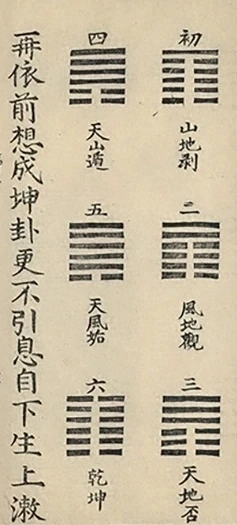 初
山地剥
二
風地觀
三
天地否
四
天山遁
五
天風姤
六
乾坤
再依前想成坤卦更不引息自下生上漱